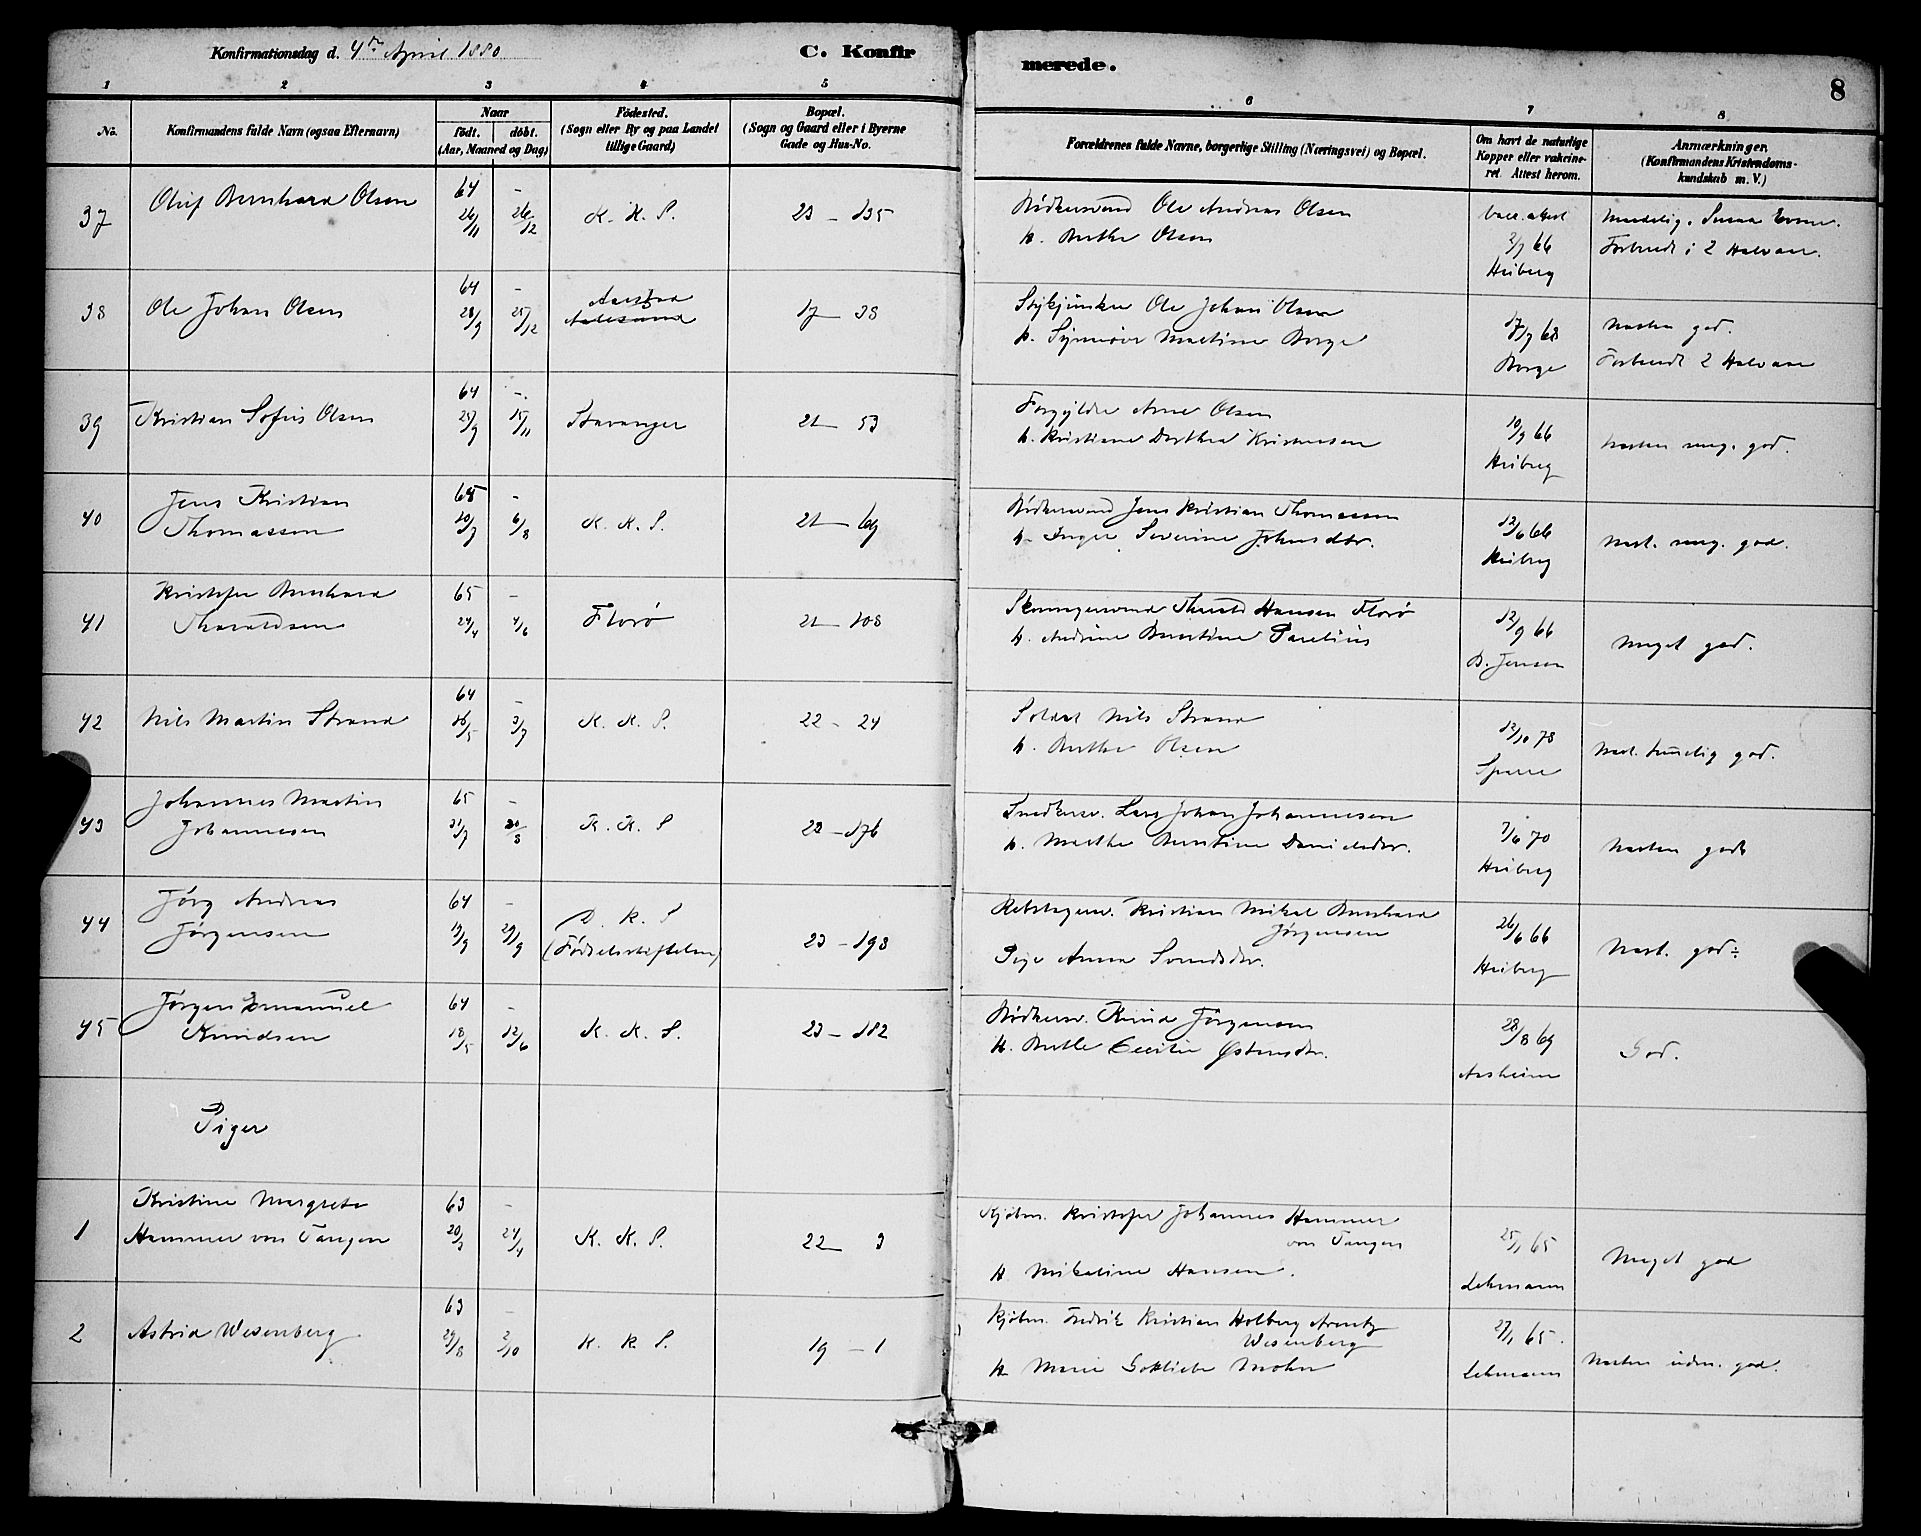 Konfirmationsdag d. 4de April 1880
C. Konfirmerede.
8
1 2 3 4 5 6 7 8
No.
Konfirmandens fulde Navn (ogsaa Efternavn)
Naar
födt. döbt.
(Aar, Maaned og Dag)
Födested.
(Sogn eller By og paa Landet
tillige Gaard)
Bopæl.
(Sogn og Gaard eller i Byerne
Gade og Hus-No.
Forældrenes fulde Navne, borgerlige Stilling (Næringsvei) og Bopæl.
Om havt de naturlige
Kopper eller vakcine-
ret. Attest herom.
Anmærkninger.
(Konfirmandens Kristendoms-
kundskab m. V.)
37 Oluf Bernhard Olsen 64 26/11 - 26/12 K. K. S. 23 - 135
Bödkersvend Ole Andreas Olsen
h. Berthe Olsen
2/7 66
Heiberg
Forbredt i 2 Halvaar.
38 Ole Johan Olsen 64 28/9 - 25/12 Aalesund 17 - 38
Ole Johan Olsen
h. Synneöve Martine Borge
17/7 68
Borge
Næsten god.
Forberedt 2 Halvaar
39 Kristian Sofus Olsen 64 23/9 - 15/11 Stavanger 21 - 53
Forgylder Arne Olsen
h. Kristiane Dorthea Kristensen
10/9 66
Heiberg
Næsten meg. god.
40 Jens Kristian
Thomassen 65 20/7 - 6/8 K. K. S. 21 - 69
Bödkersvend Jens Kristian Thomassen
h. Inger Severine Johnsdtr.
12/6 66
Heiberg
Næst. meg. god.
41 Kristofer Bernhard
Tharaldsen 65 24/4 - 4/6 Florö 21 - 108
Hansen Florö
h. Andrine Berntine Parelius
12/9 66
B. Jensen
Meget god.
42 Nils Martin Strand 64 16/5 - 3/7 K. K. S. 22 - 24
Soldat Nils Strand
h. Berthe Olsen
12/10 78
Sparre
Næst. temelig god.
43 Johannes Martin
Johannesen 65 31/7 - 20/8 K. K. S 22 - 176
Snedkersv. Lars Johan Johannesen
h. Marthe Berntine Danielsdtr.
7/6 70
Heiberg
Næsten godt
44 Jörg Andreas
Jörgensen 64 19/9 - 29/9 D. K. S
(Födselsstiftelsen) 23 - 198
Rebslagersv. Kristian Mikal Bernhard
Jörgensen
Pige Anna Svendsdtr.
26/6 66
Heiberg
Næst. god÷
45 Jörgen Emanuel
Knudsen 64 18/5 - 12/6 K. K. S. 23 - 182
Bödkersv. Knud Jörgensen
H. Berthe Cecilie Östensdtr.
28/8 69
Aasheim
God.
Piger
1 Kristine Margrete
Hammer von Tangen 63 20/3 - 24/4 K. K. S. 22 - 3
Kjöbm. Kristofer Johannes Hammer
von Tangen
H. Mikaline Hansen.
25/1 65
Lehmann
Meget god
2 Astrid Wesenberg 63 29/8 - 2/10 K. K. S. 19 - 1
Kjöbm. Fredrik Kristian Holberg Arentz
Wesenberg
H. Marie Gotliebe Mohn
27/1 65.
Lehmann
Næsten udm. god.